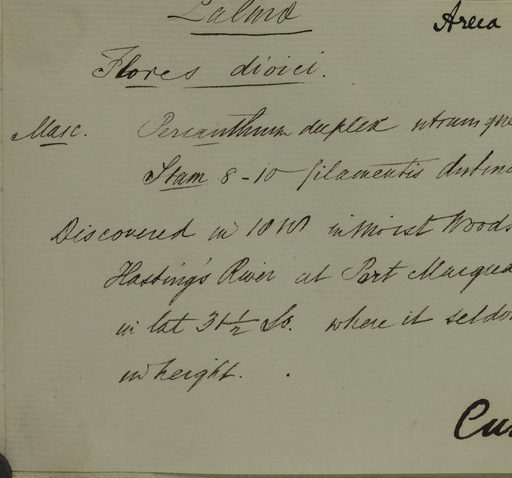 Palmæ
Areca
Flores dioici.
Masc. Perianthium duplex utrumque
Stam 8-10 filamentis
Discovered in 1818 in Moist Woods
Hasting's River at Port Macqua
in lat 31½ So. where it seldo
in height.
Cun